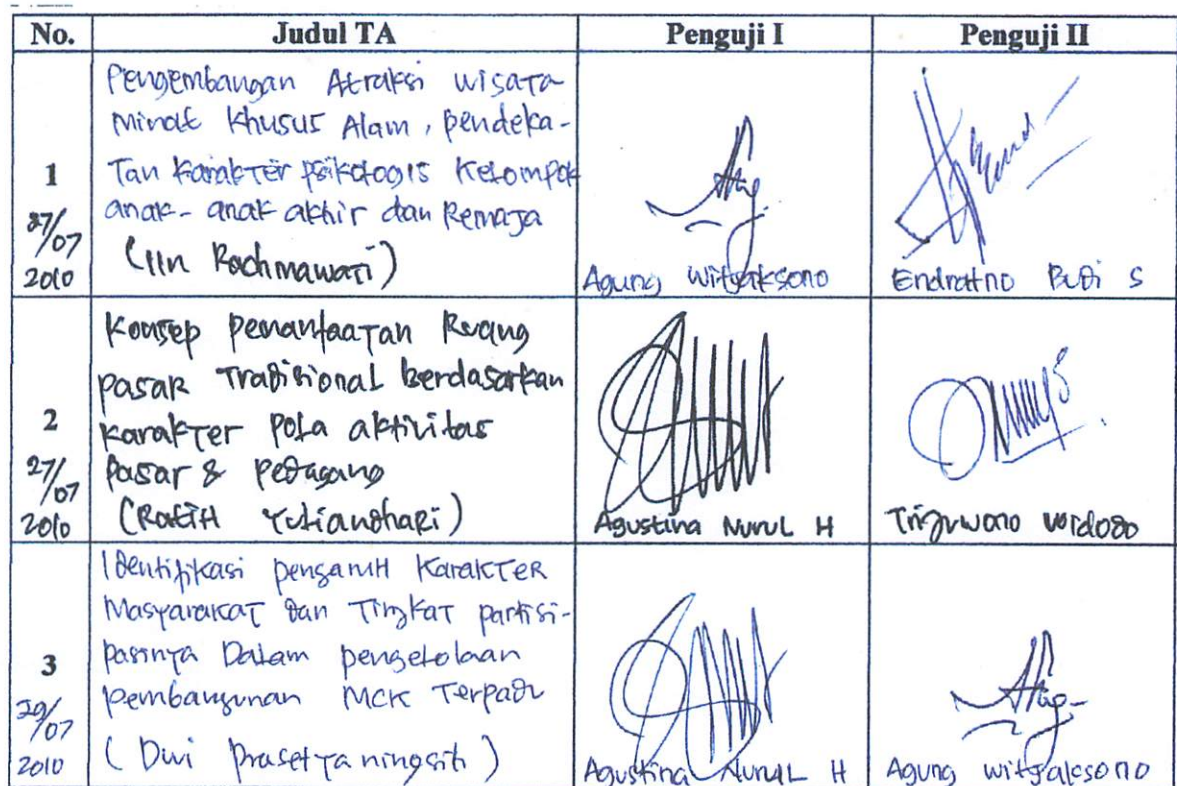 No. Judul TA Penguji I Penguji II
1
27/07
2010
Pengembangan Atraksi wisata
Minat Khusus Alam, pendeka-
Tan Karakter psikologis Kelompok
anak-anak akhir dan Remaja
(Iin Rachmawati)
Agung Witjaksono
Endratno Budi S
2
27/07
2010
Konsep pemanfaatan Ruang
pasar Tradisional berdasarkan
karakter pola aktivitas
pasar & pedagang
(Ratih Yuliandhari)
Agustina Nurul H
Trijuwono Widodo
3
29/07
2010
Identifikasi pengaruh Karakter
Masyarakat dan Tingkat partisi-
pasinya Dalam pengelolaan
pembangunan MCK Terpadu
(Dwi prasetyaningsih)
Agustina Nurul H
Agung witjaksono